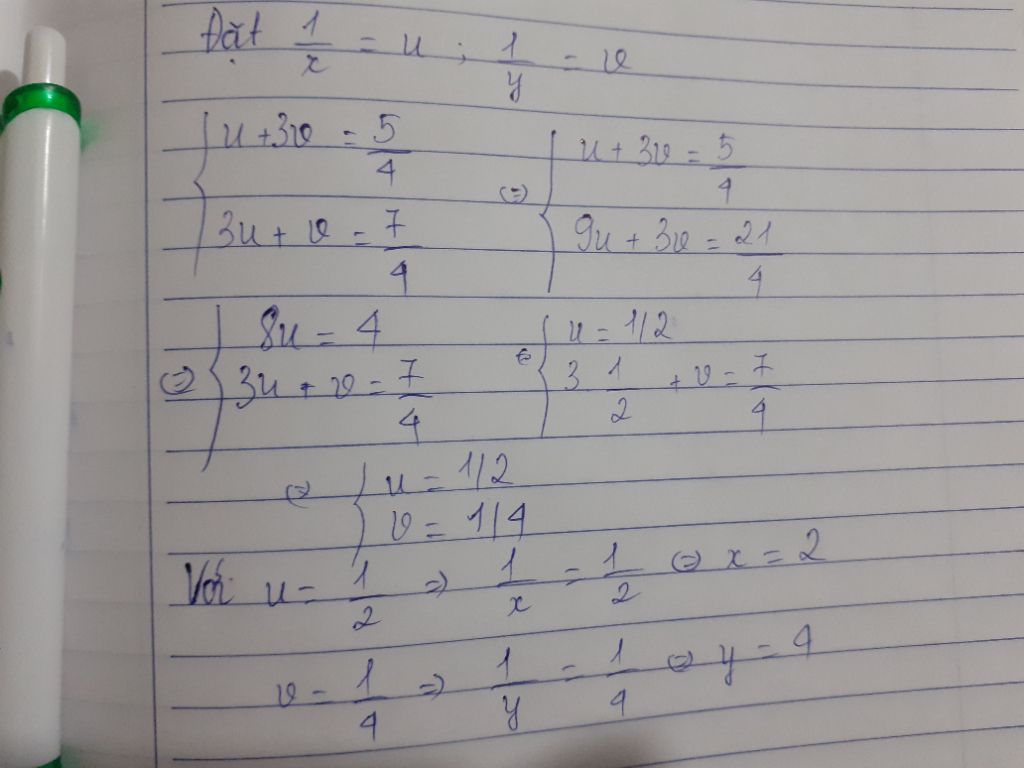 Đặt 1/x = u ; 1/y = v
{ u + 3v = 5/4 (=) { u + 3v = 5/4
3u + v = 7/4 9u + 3v = 21/4
(=) { 8u = 4 (=) { u = 1/2
3u + v = 7/4 3 1/2 + v = 7/4
(=) { u = 1/2
v = 1/4
Với u = 1/2 => 1/x = 1/2 (=) x = 2
v = 1/4 => 1/y = 1/4 (=) y = 4